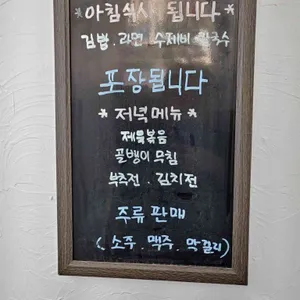 *아침식사 됩니다*
김밥. 라면. 수제비 칼국수
포장됩니다
*저녁메뉴*
제육볶음
골뱅이 무침
부추전. 김치전
주류 판매
(. 소주. 맥주. 막걸리)